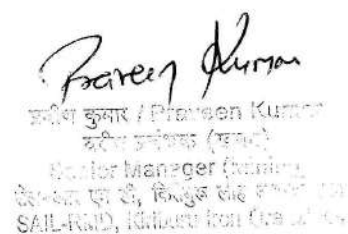 Praveen Kumar
प्रवीण कुमार / Praveen Kumar
वरीय प्रबंधक (खनन)
Senior Manager (Mining)
सेल-आर एम डी, किरीबुरू लौह
SAIL-RMD, Kiriburu Iron Ore